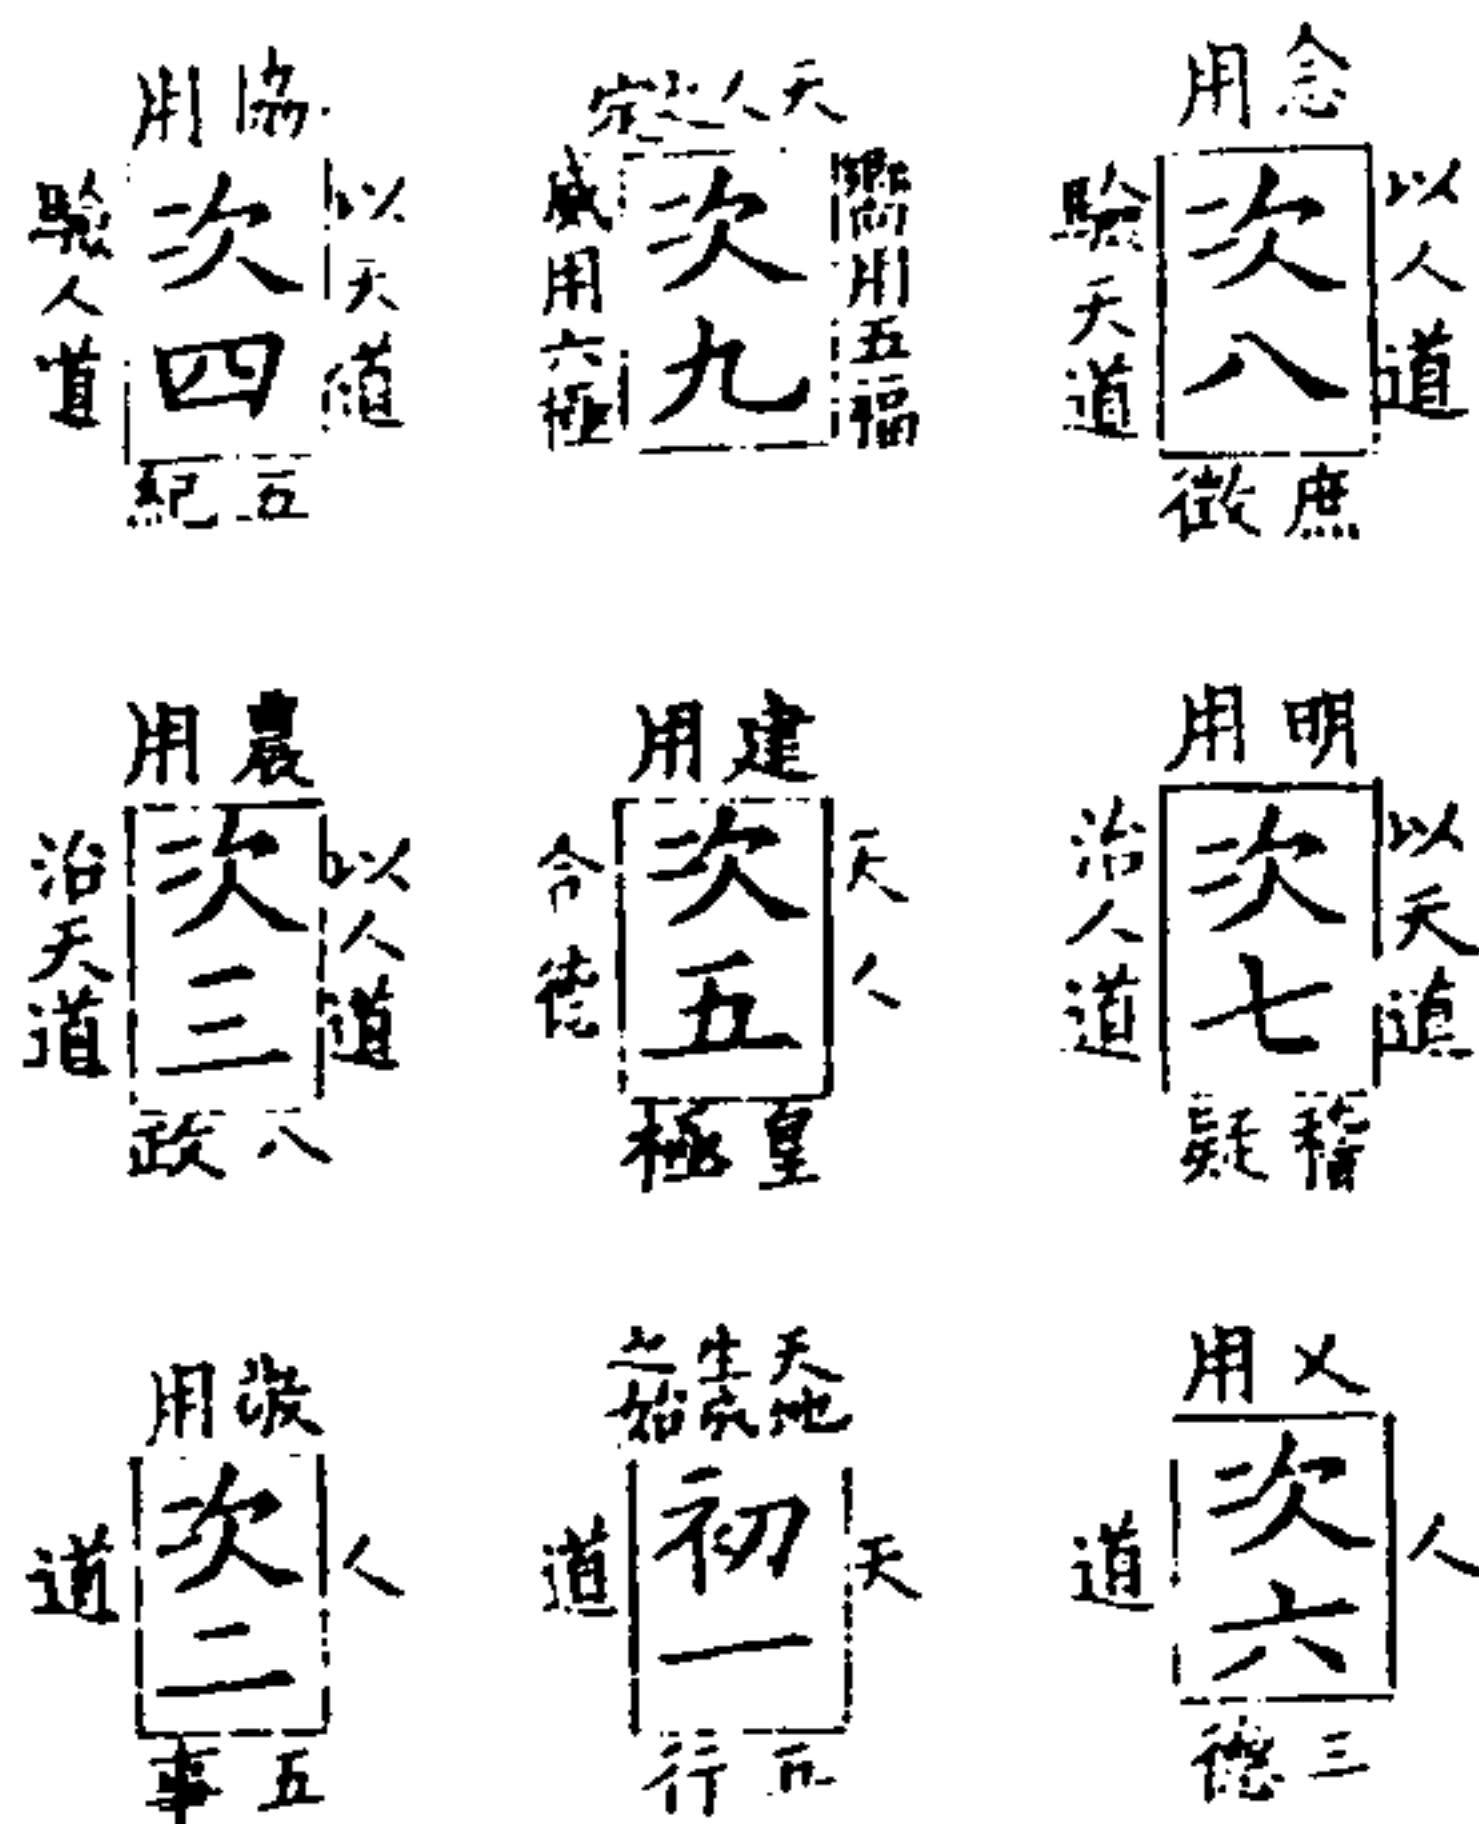 念用
以人道
次八
驗天道
庶徵
天人之
嚮用五福
次九
威用六極
協用
以天道
次四
驗人道
五紀
明用
以天道
次七
治人道
稽疑
建用
天人
次五
合德
皇極
農用
以人道
次三
治天道
八政
乂用
人
次六
道
三德
天地
生
之始
天
初一
道
五行
用
人
次二
道
五事